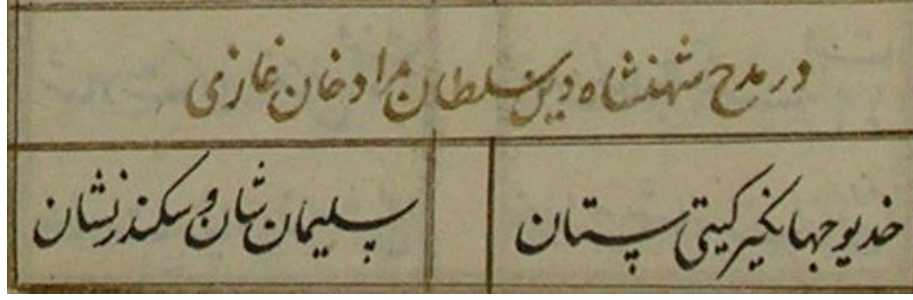 در مدح شهنشاه دین سلطان مراد خان غازی
خدیو جهانگیر گیتی ستان
سلیمان شان و سکندر نشان